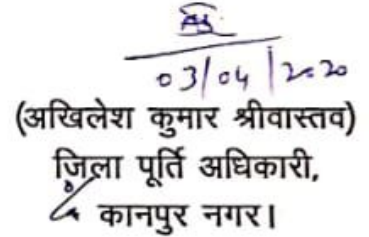 03/04/2020
(अखिलेश कुमार श्रीवास्तव)
जिला पूर्ति अधिकारी,
कानपुर नगर।